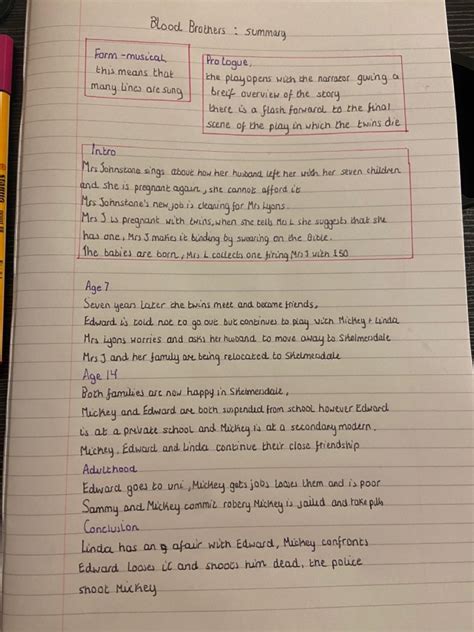 Blood Brothers : summary
Form - musical
this means that
many lines are sung
Prologue,
the play opens with the narrator giving a
breif overview of the story
there is a flash forward to the final
scene of the play in which the twins die
Intro
Mrs Johnstone sings about how her husband left her with her seven children
and she is pregnant again, she cannot afford it
Mrs Johnstone's new job is cleaning for Mrs Lyons.
Mrs J is pregnant with twins, when she tells Mrs L she suggests that she
has one, Mrs J makes it binding by swearing on the Bible.
The babies are born, Mrs L collects one firing Mrs J with £50
Age 7
Seven years later the twins meet and become friends,
Edward is told not to go out but continues to play with Mickey + Linda
Mrs Lyons worries and asks her husband to move away to Skelmersdale
Mrs J and her family are being relocated to Skelmersdale
Age 14
Both families are now happy in Skelmersdale,
Mickey and Edward are both suspended from school however Edward
is at a private school and Mickey is at a secondary modern.
Mickey, Edward and Linda continue their close friendship
Adulthood
Edward goes to uni, Mickey gets jobs looses them and is poor
Sammy and Mickey commit robery Mickey is jailed and take pills
Conclusion
Linda has an afair with Edward, Mickey confronts
Edward looses it and shoots him dead, the police
shoot Mickey